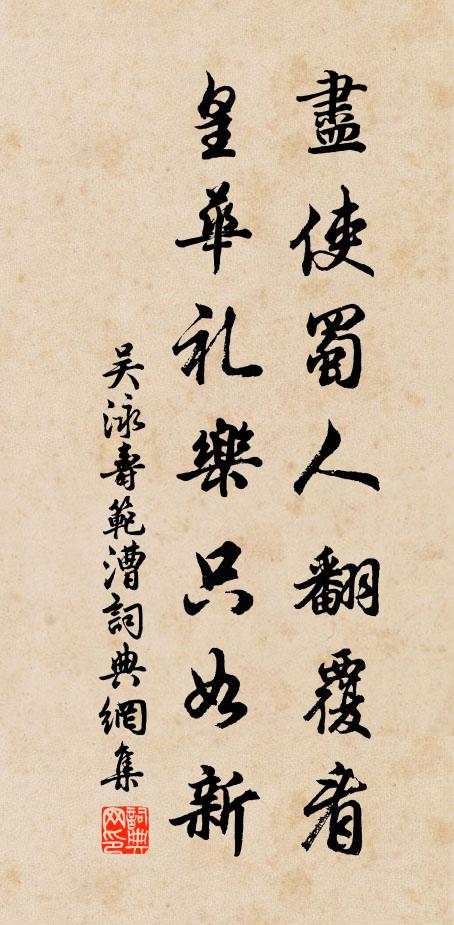 盡使蜀人翻覆看
皇華礼樂只如新
吴泳壽範漕詞典網集
詞典网印